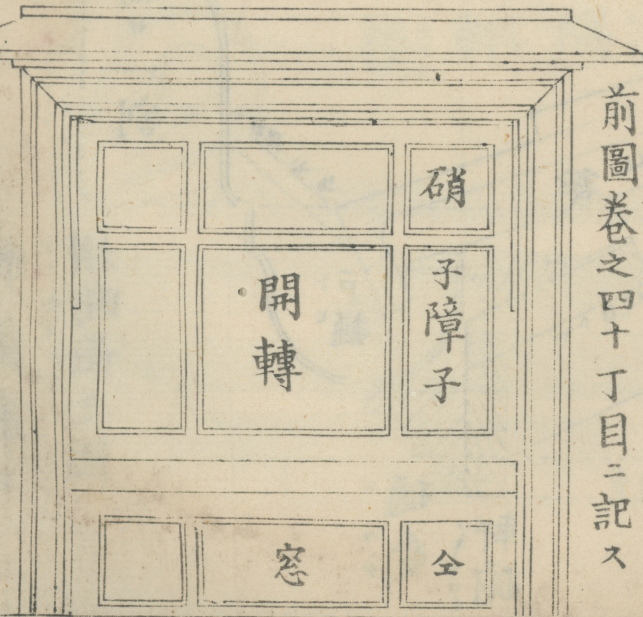 前圖卷之四十丁目ニ記ス
硝子障子
開轉
仝
窓